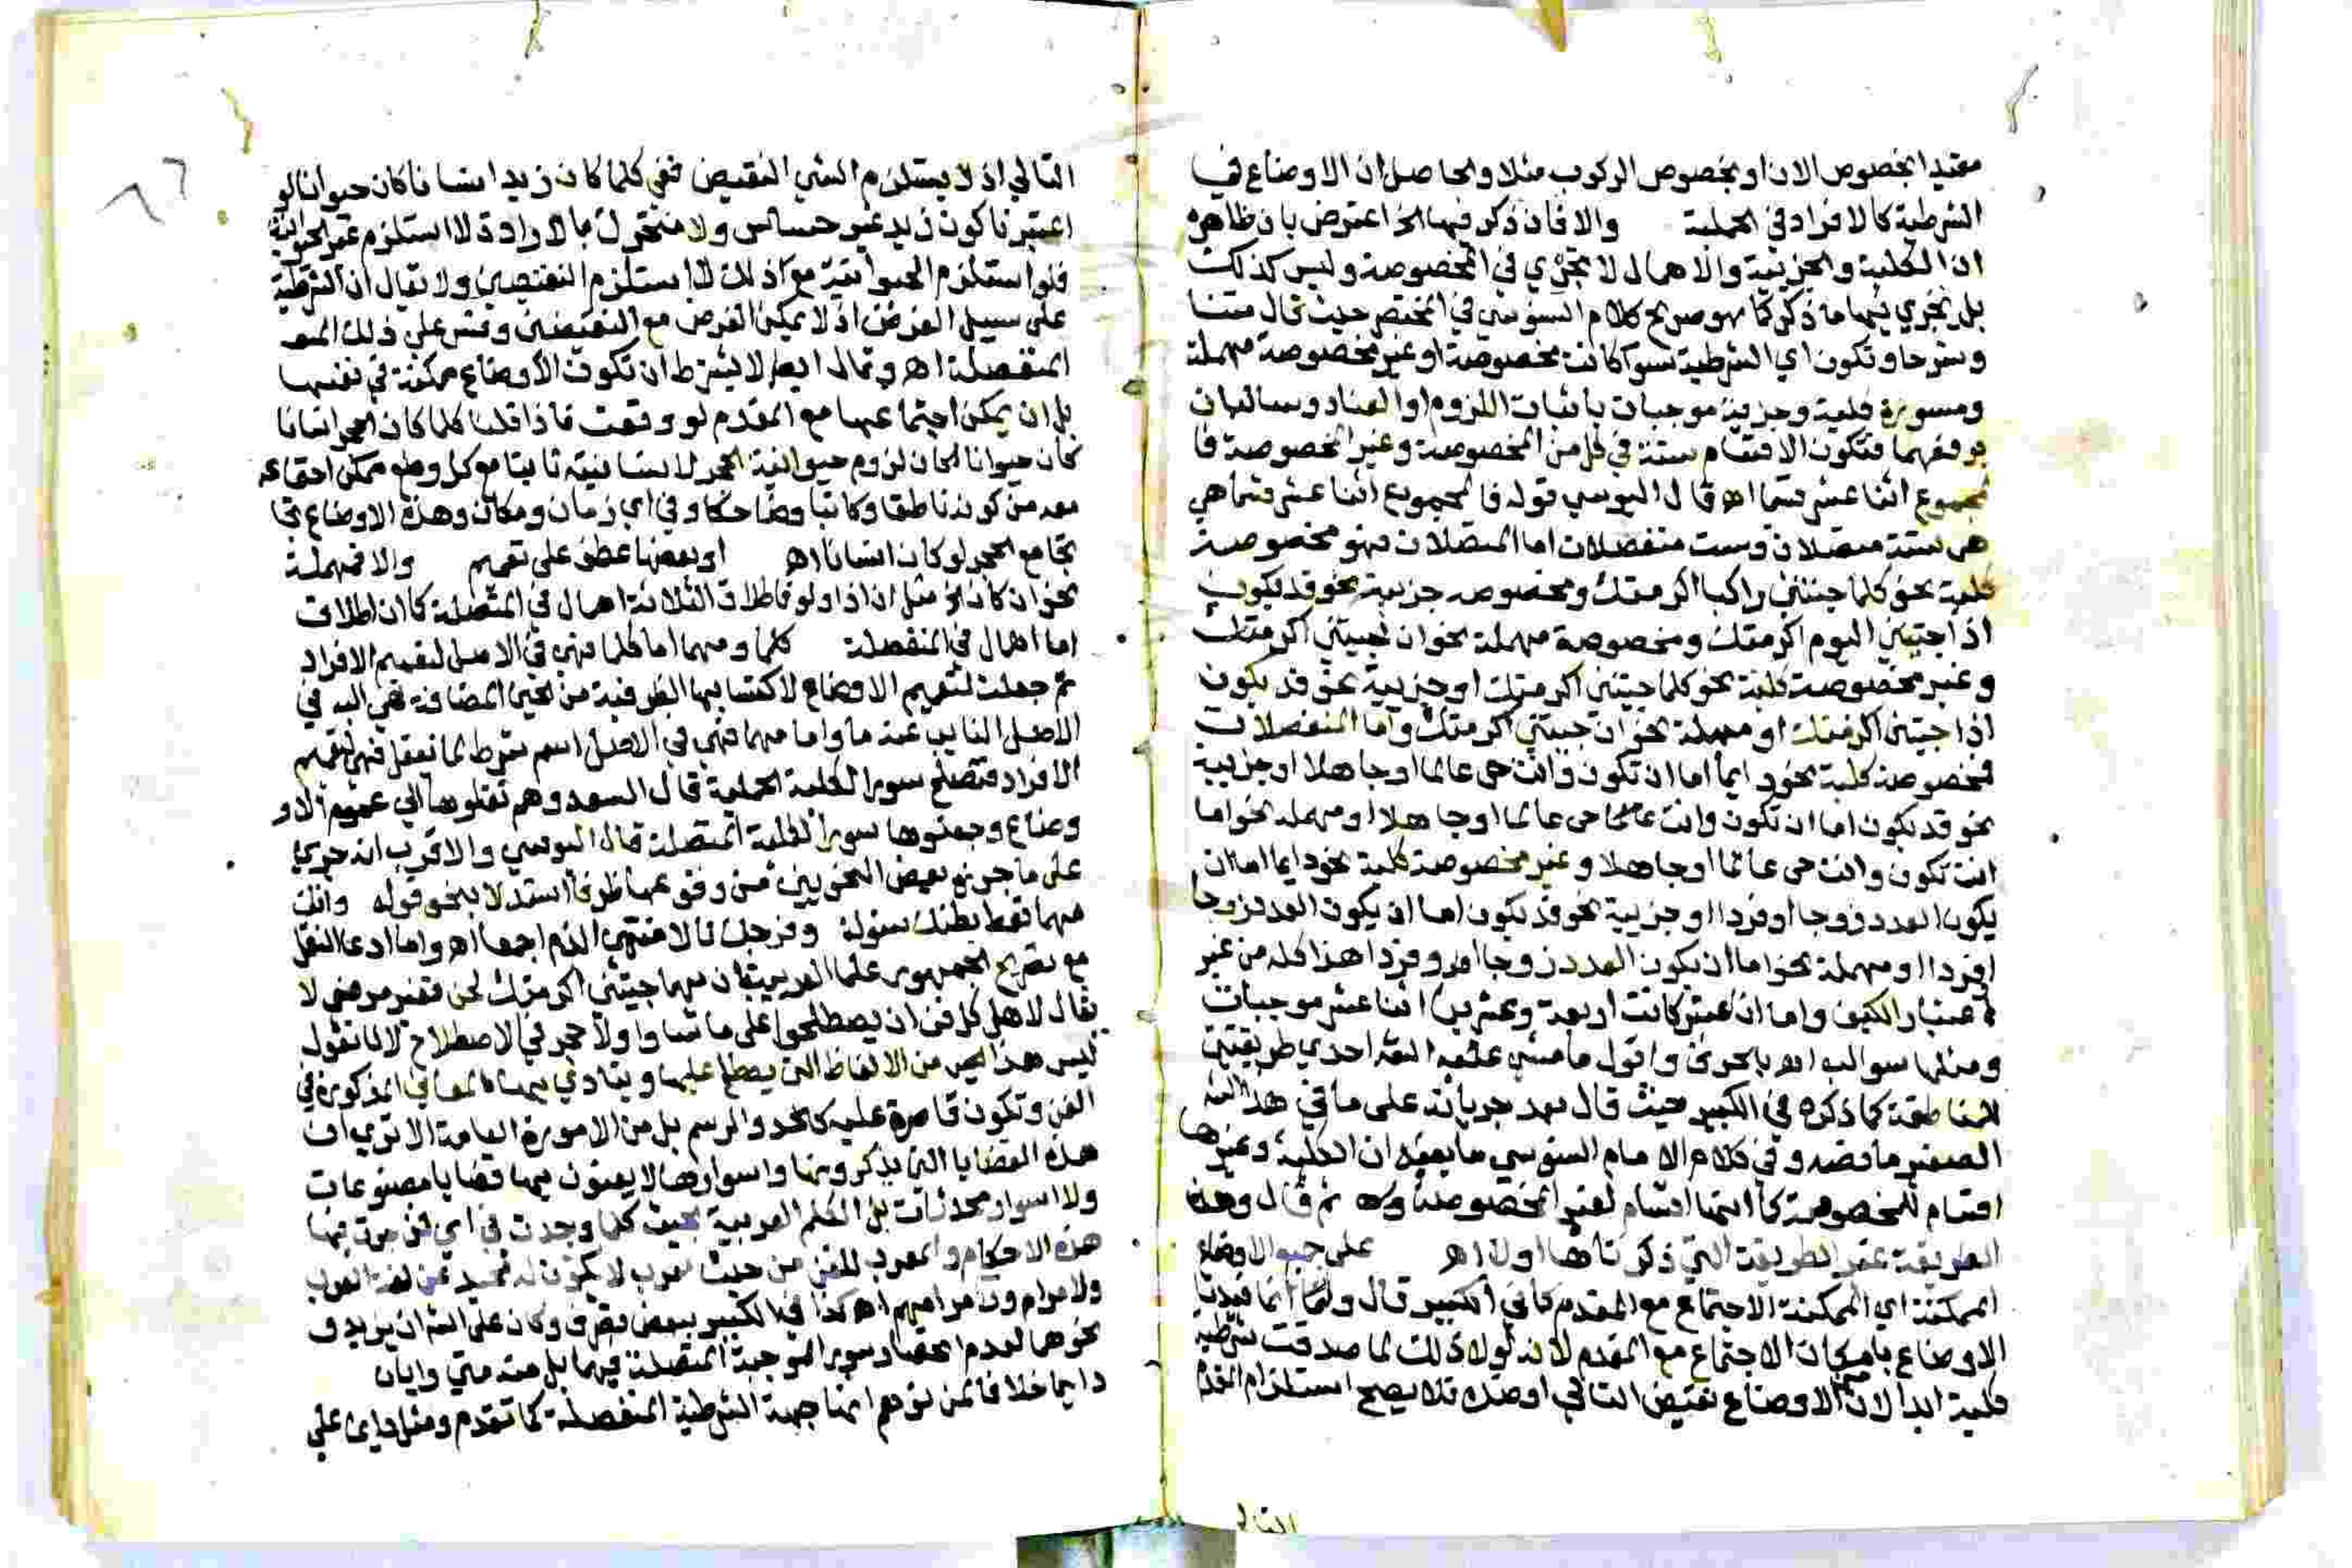 مقيدا بخصوص الان او بخصوص الركوب مثلا والحاصل ان الاوضاع في
الشرطية كالافراد في الحملية والا فان ذكر فيها الخ اعترض بان ظاهره
ان الكلية والجزيية والاهمال لا تجري في المخصوصة وليس كذلك
بل يجري فيها ما ذكر كما هو صريح كلام السنوسي في المختصر حيث قال متنا
وشرحا وتكون اي الشرطية سوا كانت مخصوصة او غير مخصوصة مهملة
ومسورة كلية وجزيية موجبات باثبات اللزوم او العناد وسالبات
برفعهما فتكون الاقسام ستة في كل من المخصوصة وغير المخصوصة فا
لمجموع اثنا عشر قسما اه قال اليوسي قوله فالمجموع اثنا عشر قسما هي
هي ستة متصلات وست منفصلات اما المتصلات فهو مخصوصة
كلية نحو كلما جئتني راكبا اكرمتك ومخصوصه جزيية نحو قد يكون
اذا جيتني اليوم اكرمتك ومخصوصة مهملة نحو ان جيتني اكرمتك
وغير مخصوصة كلية نحو كلما جيتني اكرمتك او جزيية نحو قد يكون
اذا جيتني اكرمتك او مهملة نحو ان جيتني اكرمتك واما المنفصلات
فمخصوصة كلية نحو دايما اما ان تكون وانت حي عالما او جاهلا او جزيية
نحو قد يكون اما ان تكون وانت حي عالما او جاهلا او مهمله نحو اما
انت تكون وانت حي عالما او جاهلا وغير مخصوصة كلية نحو دايما اما ان
يكون العدد زوجا او فردا او جزيية نحو قد يكون اما ان يكون العدد زوجا
او فردا او مهملة نحو اما ان يكون العدد زوجا او فردا هذا كله من غير
اعتبار الكيف واما ان اعتبر كانت اربعة وعشرين اثنا عشر موجبات
ومثلها سوالب اه بالحرف واقول ما مشى عليه الشه احدي طريقتين
للمناطقة كما ذكره في الكبير حيث قال بعد جريانه على ما في هذا الشه
الصغير ما نصه وفي كلام الامام السنوسي ما يفيد ان الكلية وغيرها
اقسام للمخصوصة كما انها اقسام لغير المخصوصة ثم قال وهذه
الطريقة غير الطريقة التي ذكرناها اولا اه على جميع الاوضاع
الممكنة اي الممكنة الاجتماع مع المقدم كما في الكبير قال وانما قيدنا
الاوضاع بامكان الاجتماع مع المقدم لانه لولا ذلك لما صدقت شرطية
كلية ابدا لان من الاوضاع نقيض التالي او ضده فلا يصح استلزام المقدم
التالي
التالي اذ لا يستلزم الشي النقيض ففي كلما كان زيد انسانا كان حيوانا لو
اعتبرنا كون زيد غير حساس ولا متحرك بالارادة لاستلزم غير الحيوانية
فلو استلزم الحيوانية مع ذلك لاستلزم النقيضين ولا يقال ان الشرطية
على سبيل الفرض اذ لا يمكن الفرض مع النقيضين وقس على ذلك
المنفصلة اه وقال ايضا لا يشترط ان تكون الاوضاع ممكنة في نفسها
بل ان يمكن اجتماعها مع المقدم لو وقعت فاذا قلنا كلما كان الحجر انسانا
كان حيوانا كان لزوم حيوانية الحجر لانسانيته ثابتا مع كل وضع ممكن اجتماعه
معه من كونه ناطقا وكاتبا وضاحكا وفي اي زمان ومكان وهذه الاوضاع
تجامع الحجر لو كان انسانا اه او بعضها عطف على تعميم والا فمهملة
نحو ان كان الخ مثل ان اذا ولو فاطلاق الثلاثة اهمال في المتصلة كما ان اطلاق
اما اهمال في المنفصلة كلما ومهما اما كلما فهي في الاصل لتعميم الافراد
ثم جعلت لتعميم الاوضاع لاكتسابها الظرفية من الحين المضافة هي اليه في
الاصل النايب عنه ما واما مهما فهي في الاصل اسم شرط لما يعقل فهي لتعميم
الافراد فتصلح سورا للكلية الحملية قال السعد وهم نقلوها الي عموم الاو
وضاع وجعلوها سورا للكلية المتصلة قال اليوسي والاقرب انه جري
على ما جوزه بعض النحويين من وقوعها ظرفا استدلا بنحو قوله وانك
مهما تعط بطنك سوله وفرجك نالا منتهي الذم اجمعا اه واما ادعا النقل
مع تصريح الجمهور علما العربية ان مهما جيتني اكرمتك لحن فغير مرضي لا
يقال لاهل كل فن ان يصطلحوا على ما شاوا ولا حجر في الاصطلاح لانا نقول
ليس هذا من الالفاظ التي يصطلح عليها المعاني المذكورة في
الفن وتكون قاصرة عليه كالحد والرسم بل من الامورة العامة الا تري ان
هذه القضايا التي يذكرونها واسوارها لا يعنون بها قضايا مصنوعات
ولا اسوار محدثات بل الكلم العربية بحيث كلما وجدت في اي فن جرت فيها
هذه الاحكام والمعرب للفن من حيث معرب لا يكون له محيد عن لغة العرب
ولا مرام ورا مرامهم اه كذا في الكبير ببعض تصرف وكان على الشه ان يزيد
نحوهما لعدم انحصار سور الموجبة المتصلة فيهما بل منه متي وايان
دايما خلافا لمن توهم انها جهة الشرطية المنفصلة كما تقدم ومثل دايما على